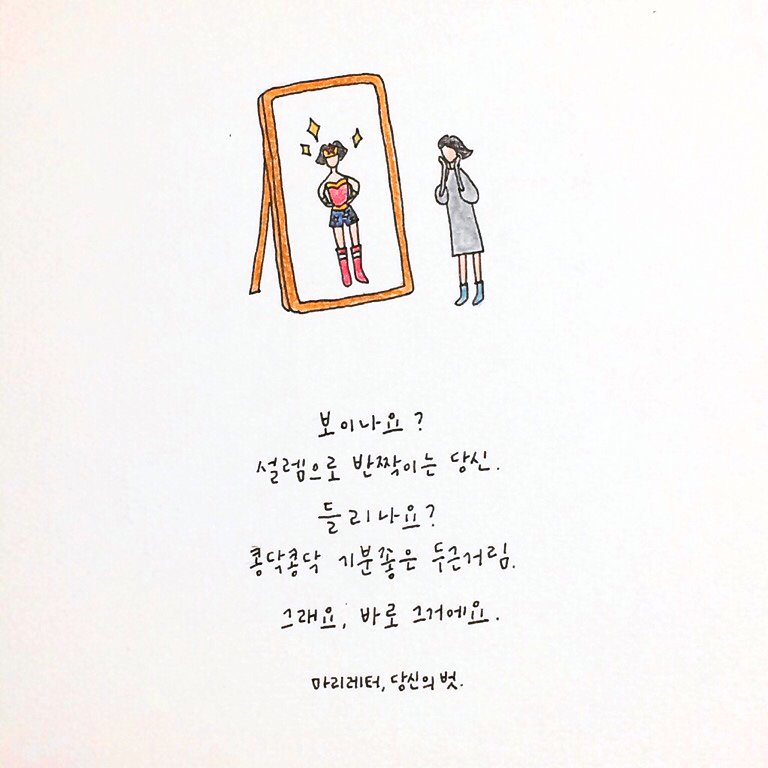 보이나요?
설렘으로 반짝이는 당신.
들리나요?
콩닥콩닥 기분좋은 두근거림.
그래요, 바로 그거에요.
마리레터, 당신의 벗.